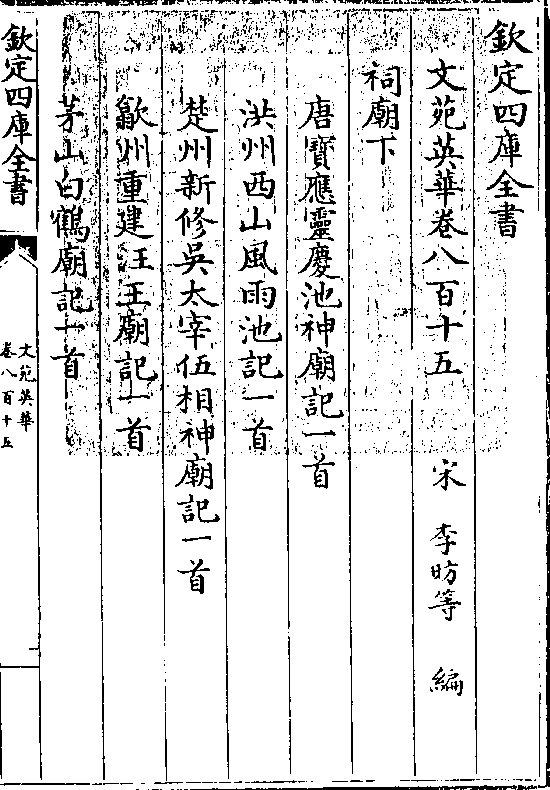 欽定四庫全書
文苑英華卷八百十五　宋　李昉等　編
祠廟下
唐寶應靈慶池神廟記一首
洪州西山風雨池記一首
楚州新修吳太宰伍相神廟記一首
歙州重建汪王廟記一首
茅山白鶴廟記一首
欽定四庫全書
文苑英華
卷八百十五
一